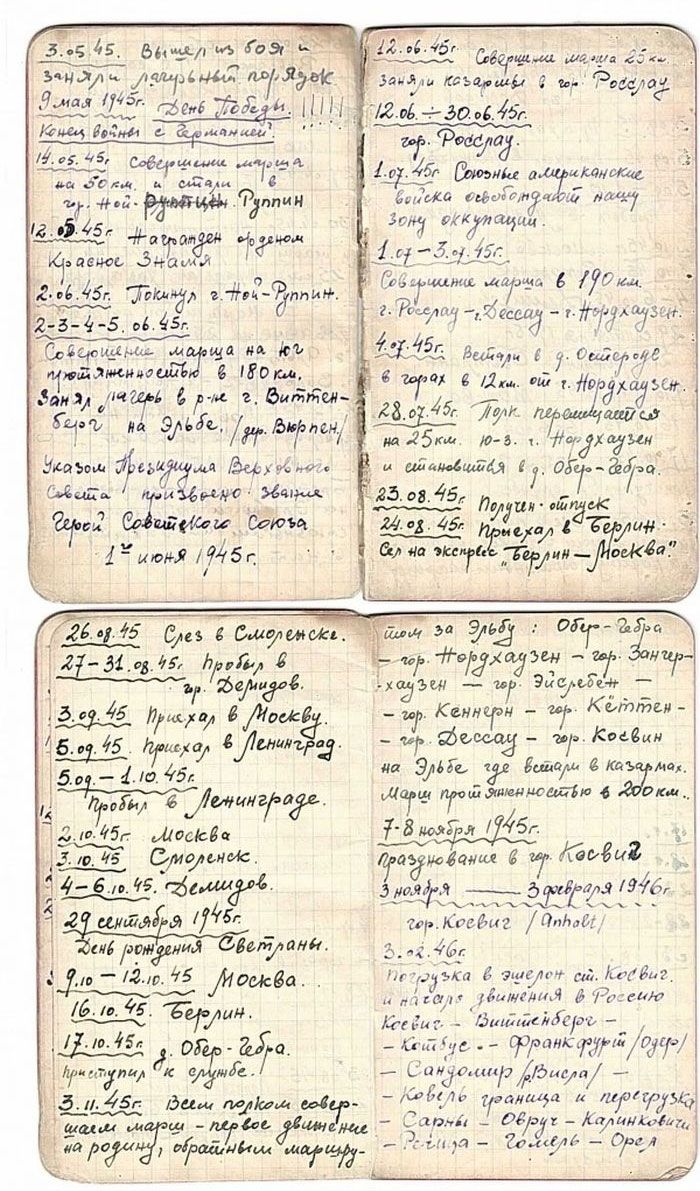 3.05.45. Вышел из боя и
заняли лагерный порядок
9 мая 1945г. День Победы. !!!!!
Конец войны с Германией.
14.05.45г совершение марша
на 50 км. и стали в
гор. Ной- Руппин
12.05.45г Награжден орденом
Красное Знамя
2.06.45г. Покинул г. Ной-Руппин.
2-3-4-5.06.45г.
Совершение марша на юг
протяженностью в 180 км.
Занял лагерь в р-не г. Виттен-
берг на Эльбе. /дер. Вюрпен/
Указом Президиума Верховного
Совета присвоено звание
Герой Советского Союза
1го июня 1945г.
12.06.45г. Совершение марша 25 км
заняли казармы в гор. Росслау
12.06. ÷ 30.06.45г.
гор. Росслау.
1.07.45г. Союзные американские
войска освобождают нашу
зону оккупации.
1.07 – 3.07.45г.
Совершение марша в 190 км.
г. Росслау – г. Дессау – г. Нордхаузен.
4.07.45г. Встали в д. Остероде
в горах в 12 км. от г. Нордхаузен.
28.07.45г. Полк перемещается
на 25 км. ю-з. г. Нордхаузен
и становиться в д. Обер-Гебра.
23.08.45г. Получен отпуск
24.08.45г. Приехал в Берлин.
Сел на экспресс „Берлин – Москва".
26.08.45 Слез в Смоленске.
27 – 31.08.45г. Пробыл в
гор. Демидов.
3.09.45 Приехал в Москву.
5.09.45. Приехал в Ленинград.
5.09. – 1.10.45г.
Пробыл в Ленинграде.
2.10.45г. Москва
3.10.45 Смоленск.
4 – 6.10.45. Демидов.
29 сентября 1945г.
День рождения Светланы.
9.10 – 12.10.45 Москва.
16.10.45. Берлин.
17.10.45г. д. Обер-Гебра.
Приступил к службе.
3.11.45г. Всем полком совер-
шаем марш – первое движение
на родину, обратным маршру-
том за Эльбу: Обер-Гебра
– гор. Нордхаузен – гор. Зангер-
-хаузен – гор. Эйслебен –
– гор. Кеннерн – гор. Кёттен –
– гор. Дессау – гор. Косвин
на Эльбе где встали в казармах.
Марш протяженностью в 200 км..
7-8 ноября 1945г.
Празднование в гор. Косвиг
3 ноября — 3 февраля 1946г.
гор. Косвиг /Anholt/
3.02.46г.
Погрузка в эшелон ст. Косвиг.
и начало движения в Россию
Косвиг – Виттенберг –
– Котбус – Франкфурт /Одер/
– Сандомир /р. Висла/ –
– Ковель граница и перегрузка
– Сарны – Овруч – Калинковичи
– Речица – Гомель – Орел